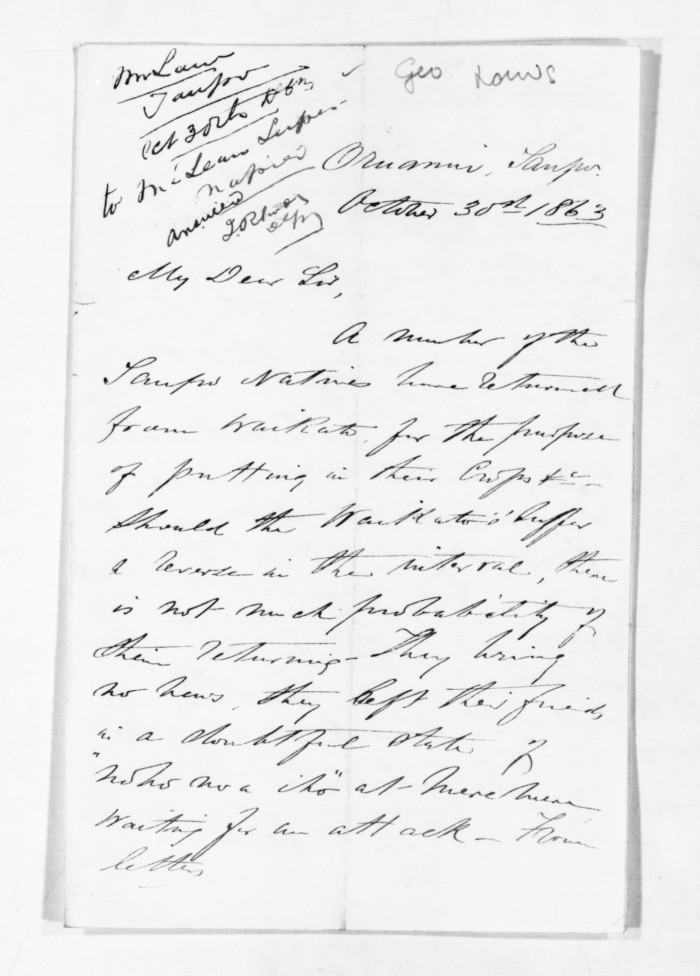 Mr Law
Taupo
Oct 30th
to McLean Super
Napier
answered
Geo Laws
Oruanui, Taupo.
October 30th 1863
My Dear Sir,
A number of the
Taupo Natives have returned
from Waikato, for the purpose
of putting in their Crops &c
should the Waikatos' suffer
a reverse in the interval, there
is not much probability of
their returning - They bring
no news, they left their friends
in a doubtful state of
"noho noa iho" at Meremere
waiting for an attack - From
letters